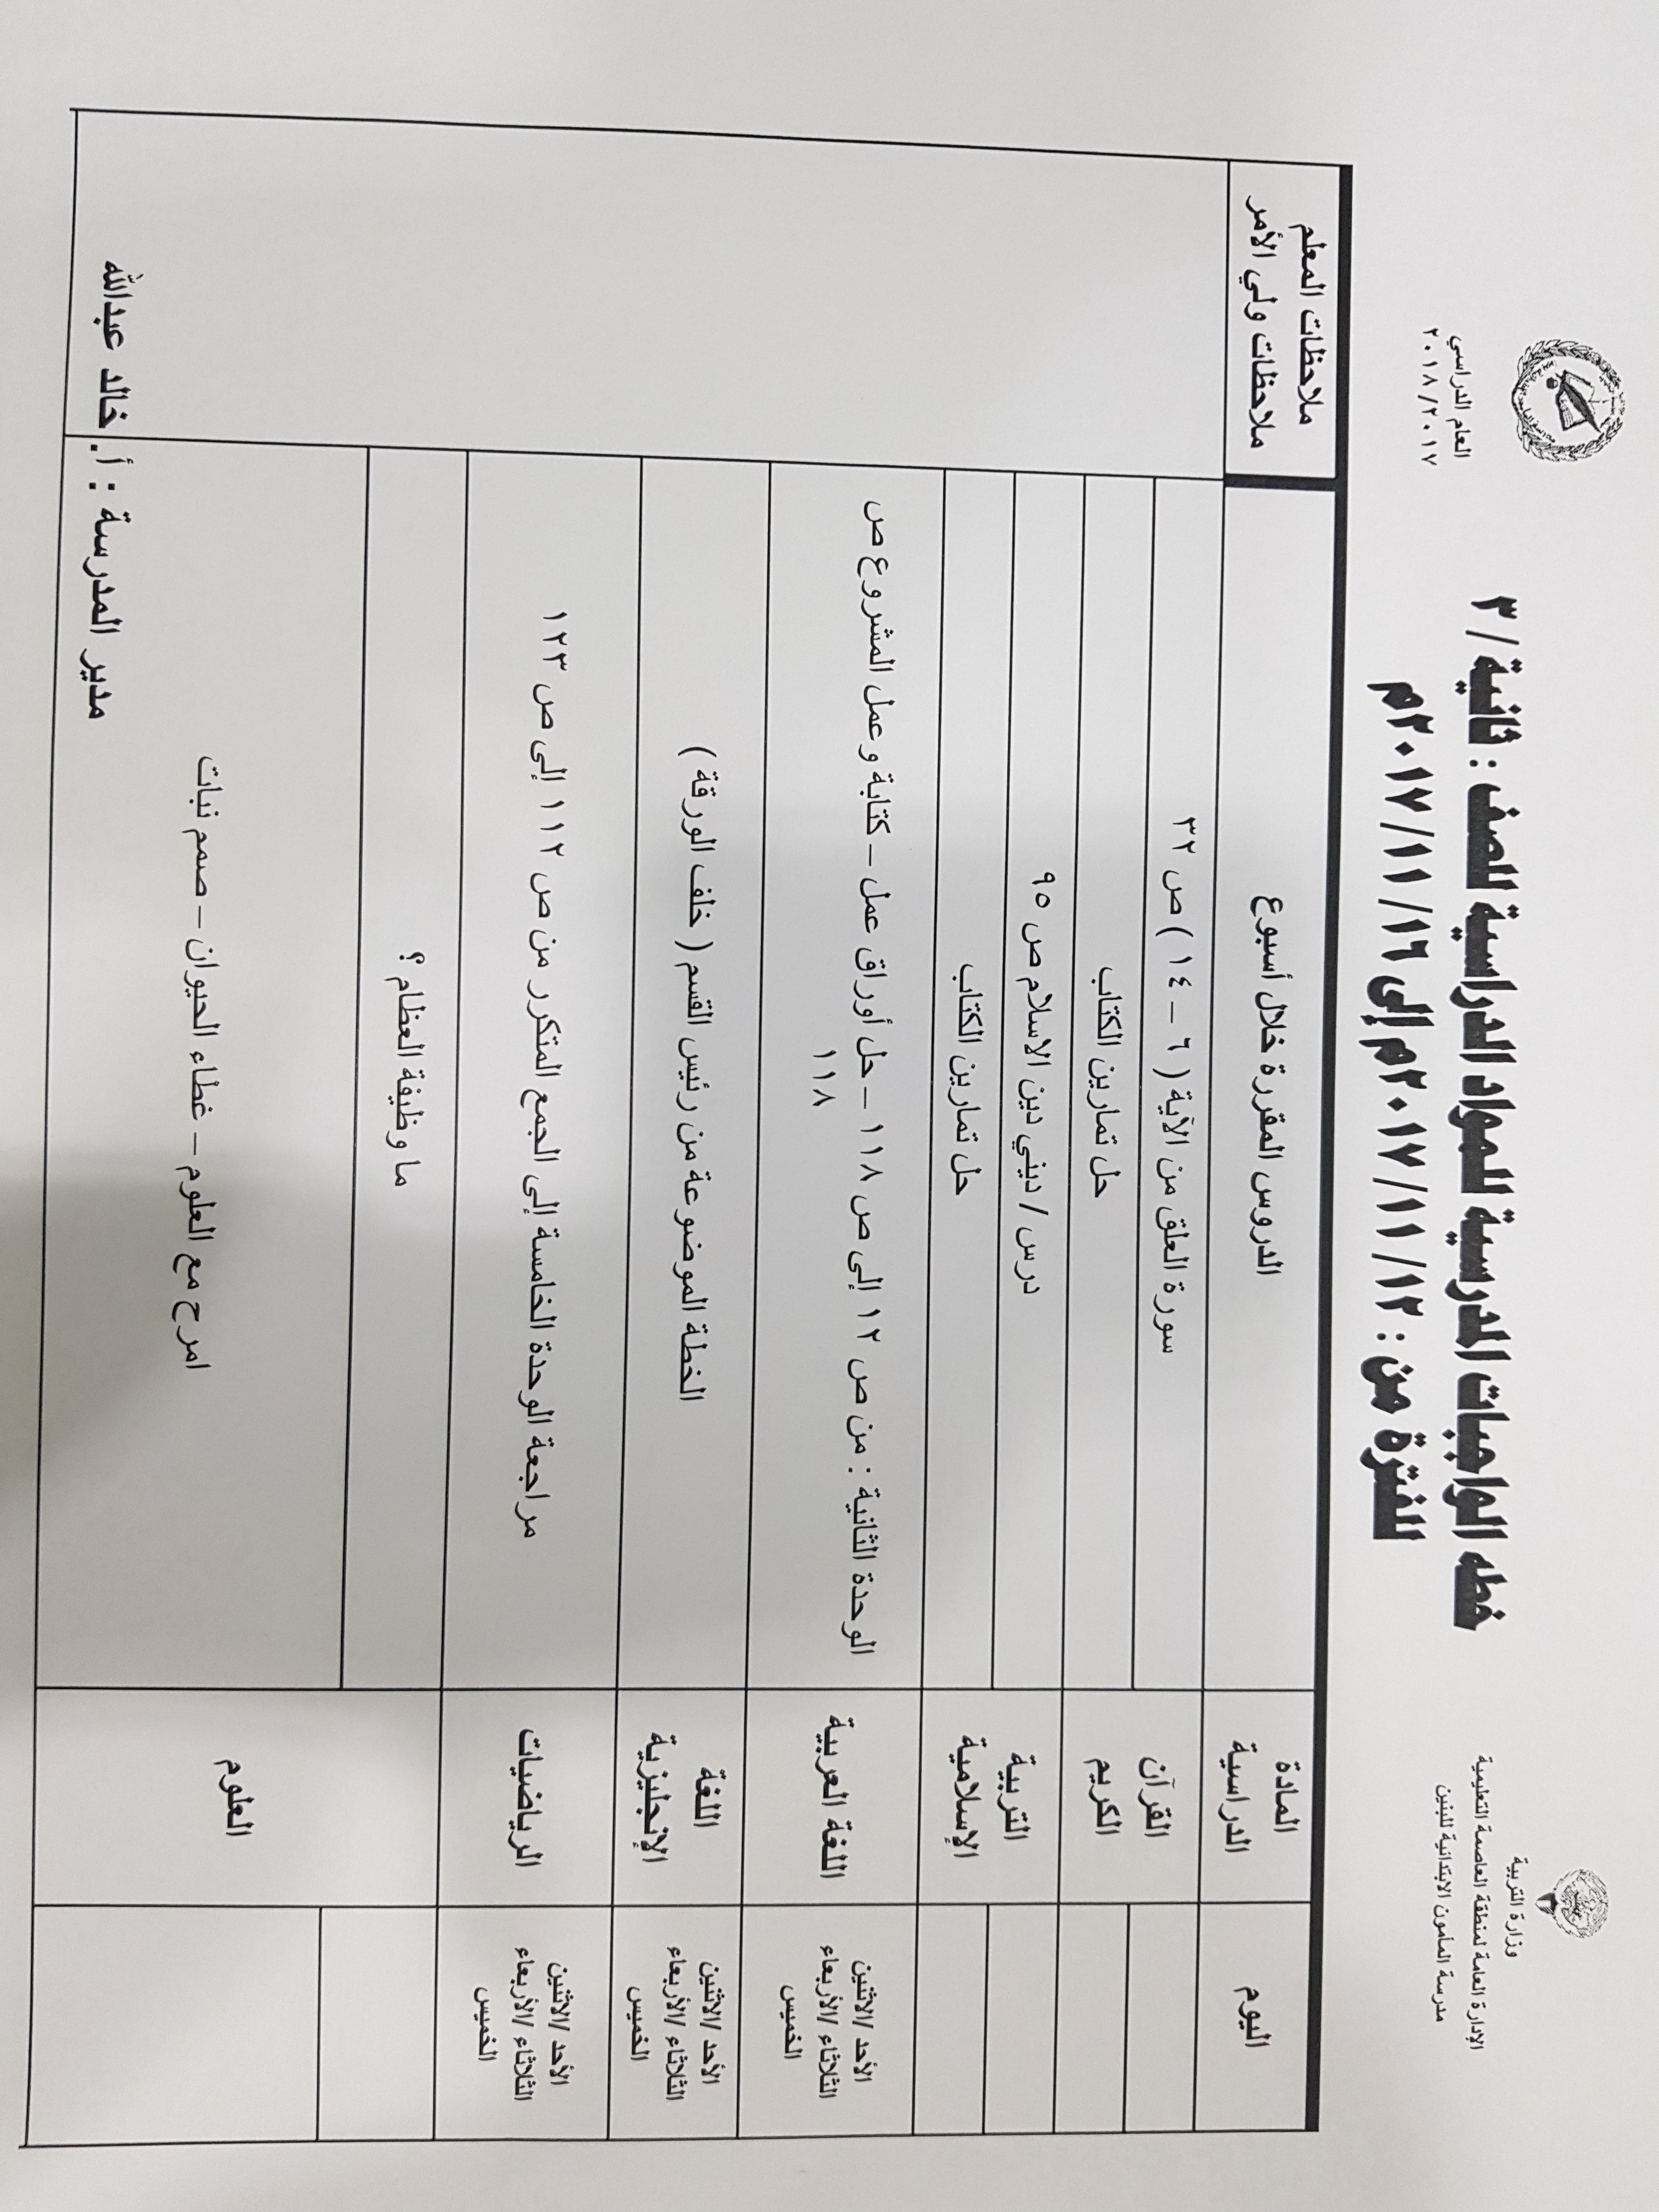 وزارة التربية
الإدارة العامة لمنطقة العاصمة التعليمية
مدرسة المأمون الابتدائية للبنين
خطه الواجبات المدرسية للمواد الدراسية للصف : ثانية / ٣
للفترة من : ١٢ / ١١ / ٢٠١٧م إلى ١٦ / ١١ / ٢٠١٧م
العام الدراسي
٢٠١٨/٢٠١٧
اليوم
المادة
الدراسية
الدروس المقررة خلال أسبوع
ملاحظات المعلم
ملاحظات ولي الأمر
القرآن
الكريم
سورة العلق من الآية ( ٦ – ١٤ ) ص ٣٢
حل تمارين الكتاب
التربية
الإسلامية
درس / ديني دين الاسلام ص ٩٥
حل تمارين الكتاب
الأحد /الاثنين
الثلاثاء /الأربعاء
الخميس
اللغة العربية
الوحدة الثانية : من ص ١٢ إلى ص ١١٨ – حل أوراق عمل – كتابة وعمل المشروع ص
١١٨
الأحد /الاثنين
الثلاثاء /الأربعاء
الخميس
اللغة
الإنجليزية
الخطة الموضوعة من رئيس القسم ( خلف الورقة )
الأحد /الاثنين
الثلاثاء /الأربعاء
الخميس
الرياضيات
مراجعة الوحدة الخامسة إلى الجمع المتكرر من ص ١١٢ إلى ص ١٢٣
العلوم
ما وظيفة العظام ؟
امرح مع العلوم – غطاء الحيوان – صمم نبات
مدير المدرسة : أ. خالد عبدالله